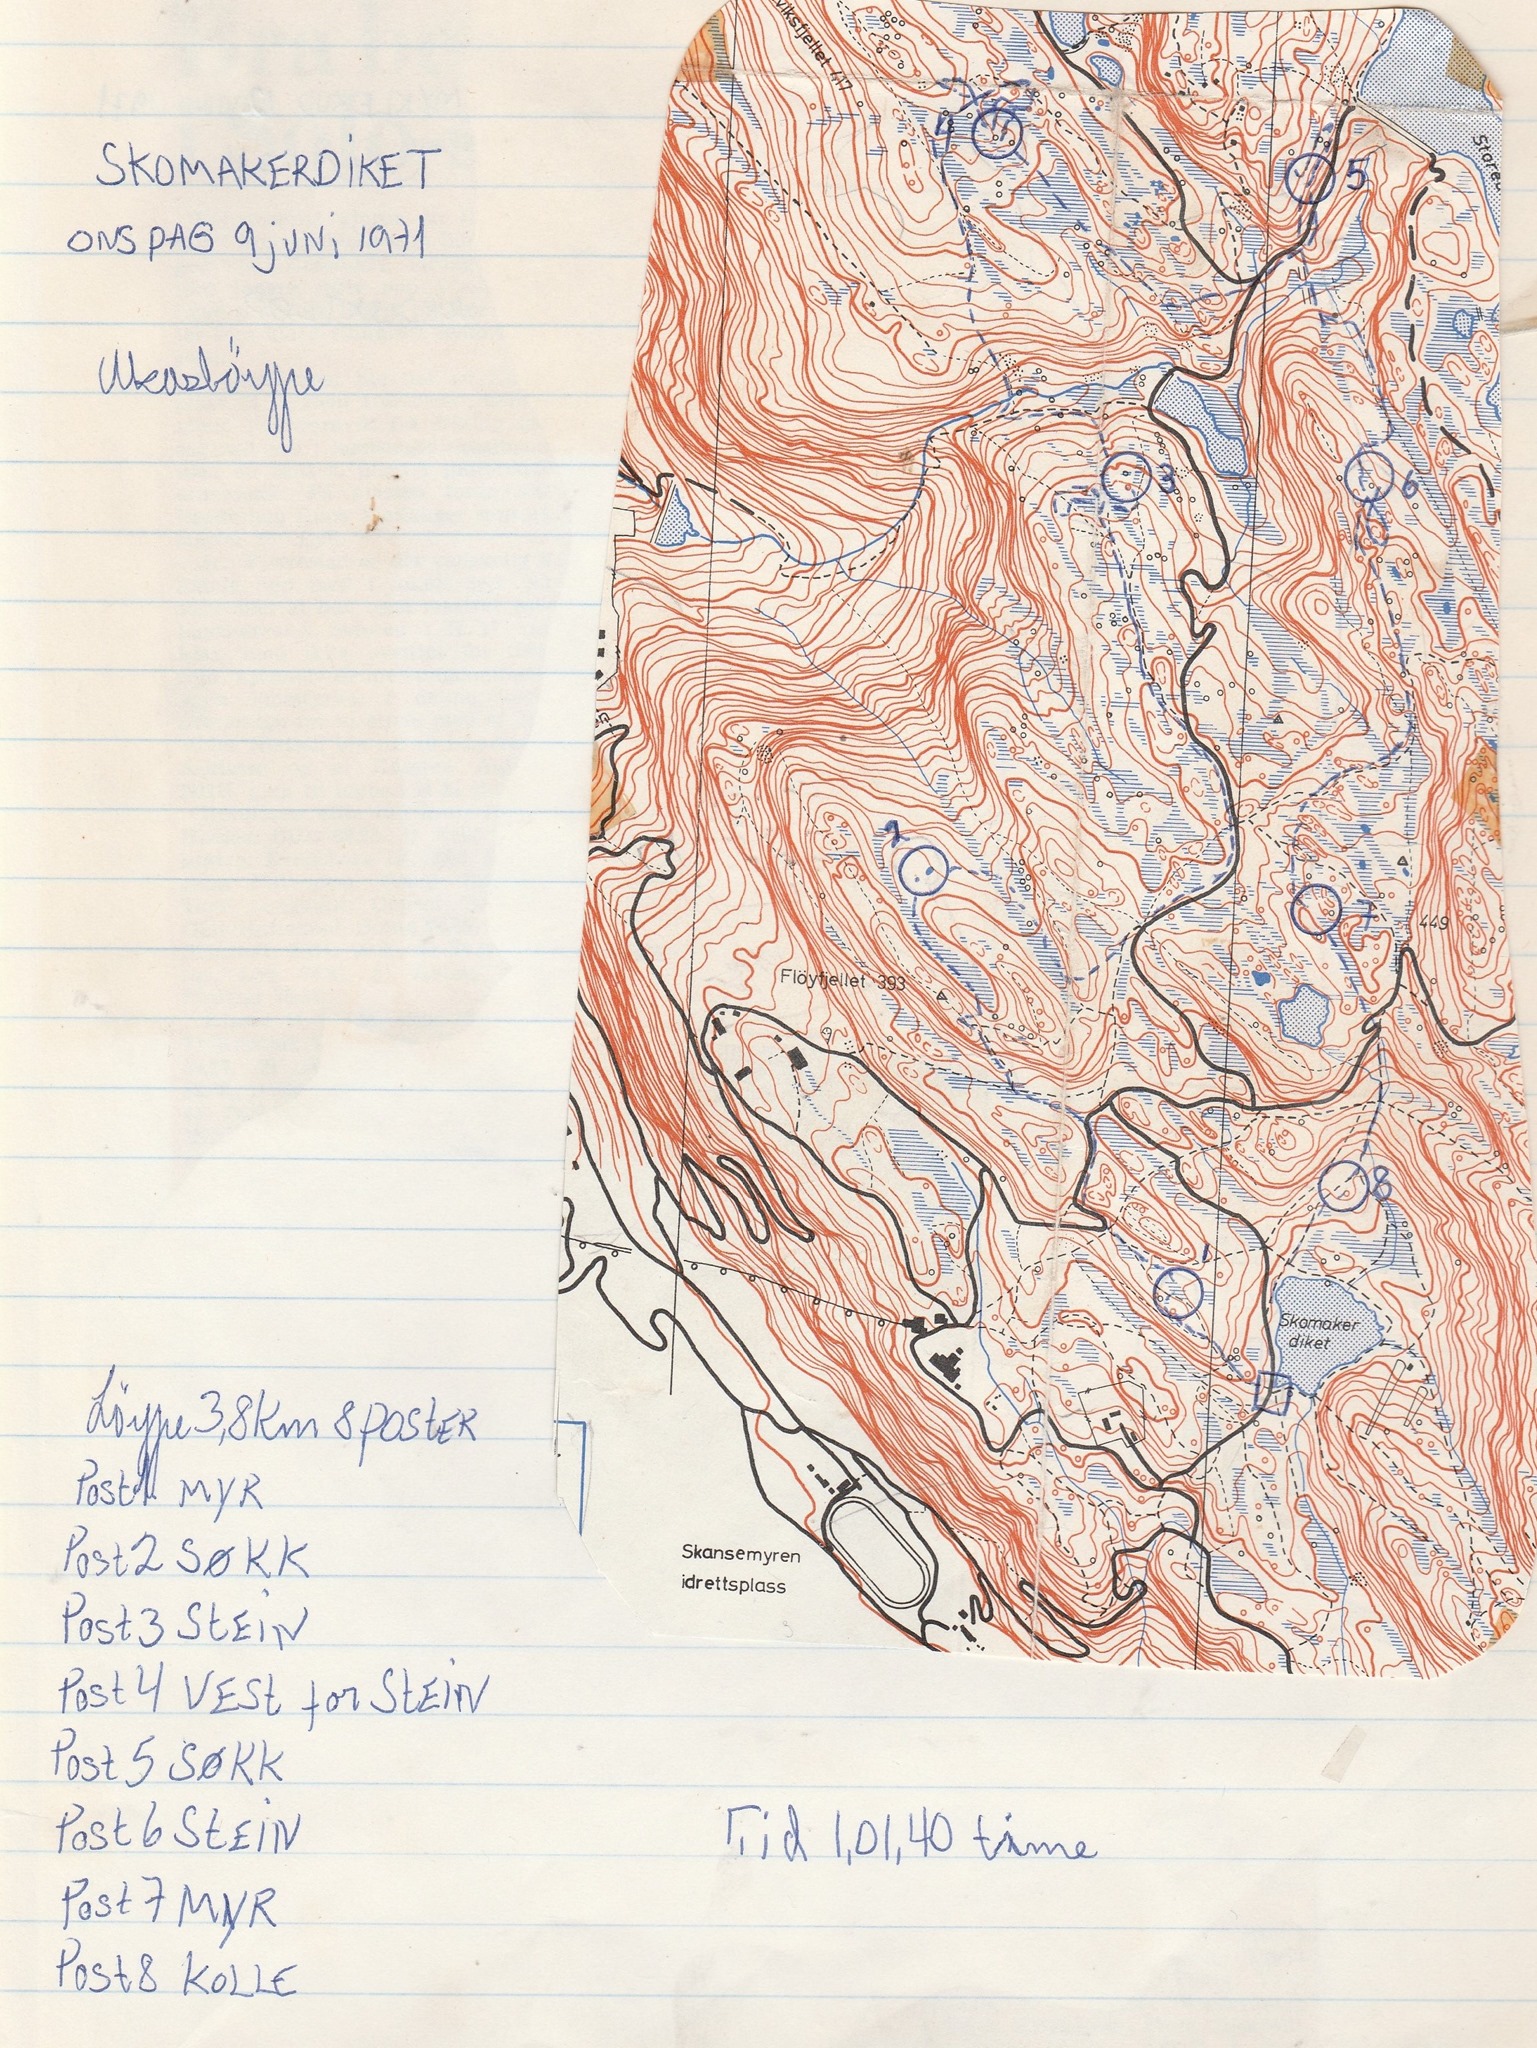 SKOMAKERDIKET
ONSDAG 9 juni 1971
Ukasløype
Löype 3,8 Km 8 POSTER
Post 1 MYR
Post 2 SØKK
Post 3 STEIN
Post 4 VEST for STEIN
Post 5 SØKK
Post 6 STEIN
Post 7 MYR
Post 8 KOLLE
Tid 1,01,40 time
viksfjellet 417
4
5
3
6
2
7
449
Flöyfjellet 393
8
1
Skomaker
diket
Skansemyren
idrettsplass